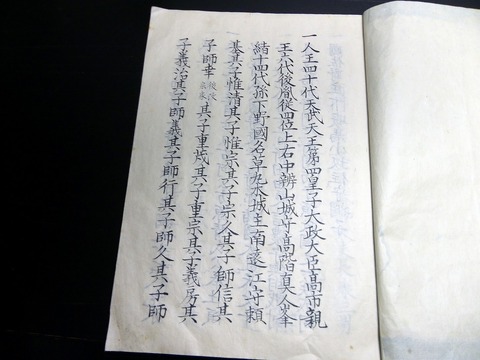 一人王四十代天武天王第四皇子大政大臣高市親
王六代後胤従四位上右中辨山城守高階真人峯
結十四代孫下野國名草丸木城主南遠江守頼
基其子惟清其子惟宗其子宗久其子師信其
子師幸 其子重茂其子重宗其子義房其
子義治其子師義其子師行其子師久其子師